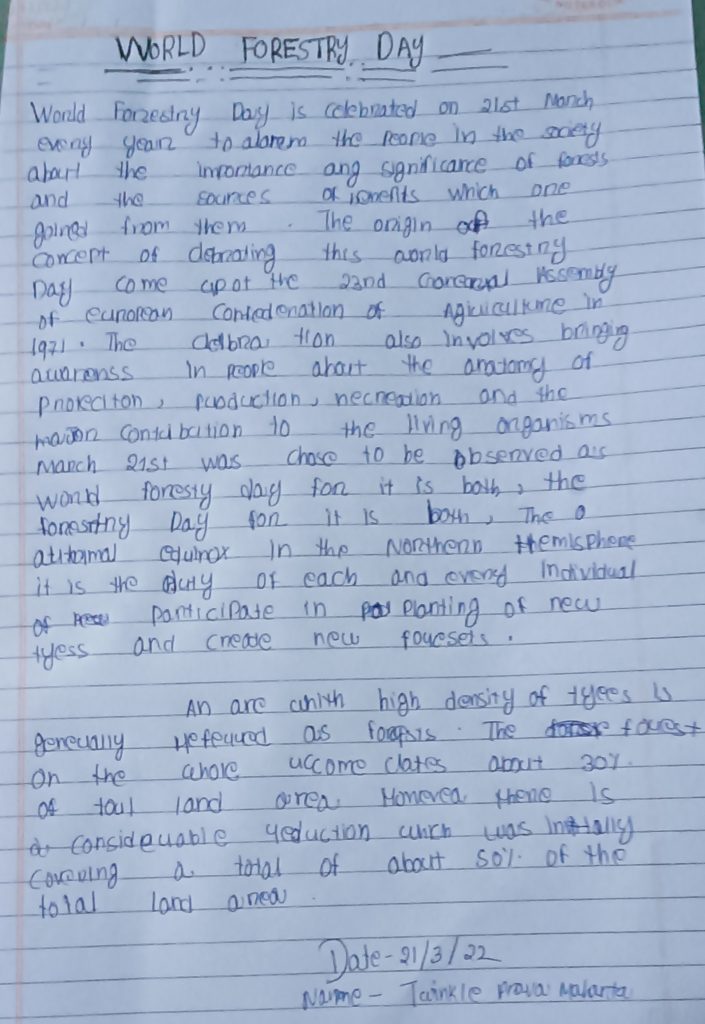 WORLD FORESTRY DAY
World Forzestry Day is celebrated on 21st March
every year to alarem the People in the society
abart the imrontance ang significance of forests
and the sources of isments which one
goined from them. The origin off the
concept of debrating this world forzestry
Day come apot the 23nd Assembly
of eunorean Confedenation of Agriculkme in
1971. The Clelbra tion also involves bringing
awarenss in people abart the anatomy of
Proteciton, production, necreation and the
maion Contcibution to the living onganisms
March 21st was chose to be observed as
world foresty day fon it is both, the
forestny Day fon it is both, The a
equinox In the Northenn Hemisphene
it is the duty of each and eveny Individual
of panticipate in planting of new
tyess and create new fouesets.
An are whith high density of tyees is
geneually yefeuued as forests. The fouest
On the whole uccome dates abart 30%.
of toul land area. Homevea thene is
a consideuable yeduction which was Initally
coveuing a total of abart 50% of the
total land anea.
Date - 21/3/22
Name - Twinkle Prava Malarta